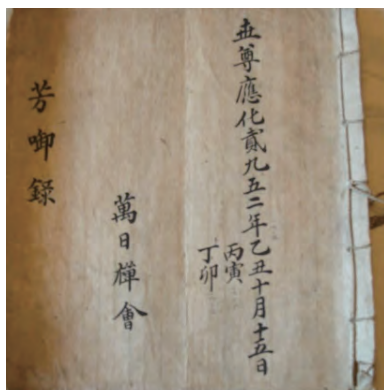 世尊應化貳九五二年乙丑十月十五日
丙寅
丁卯
萬日禪會
芳啣錄